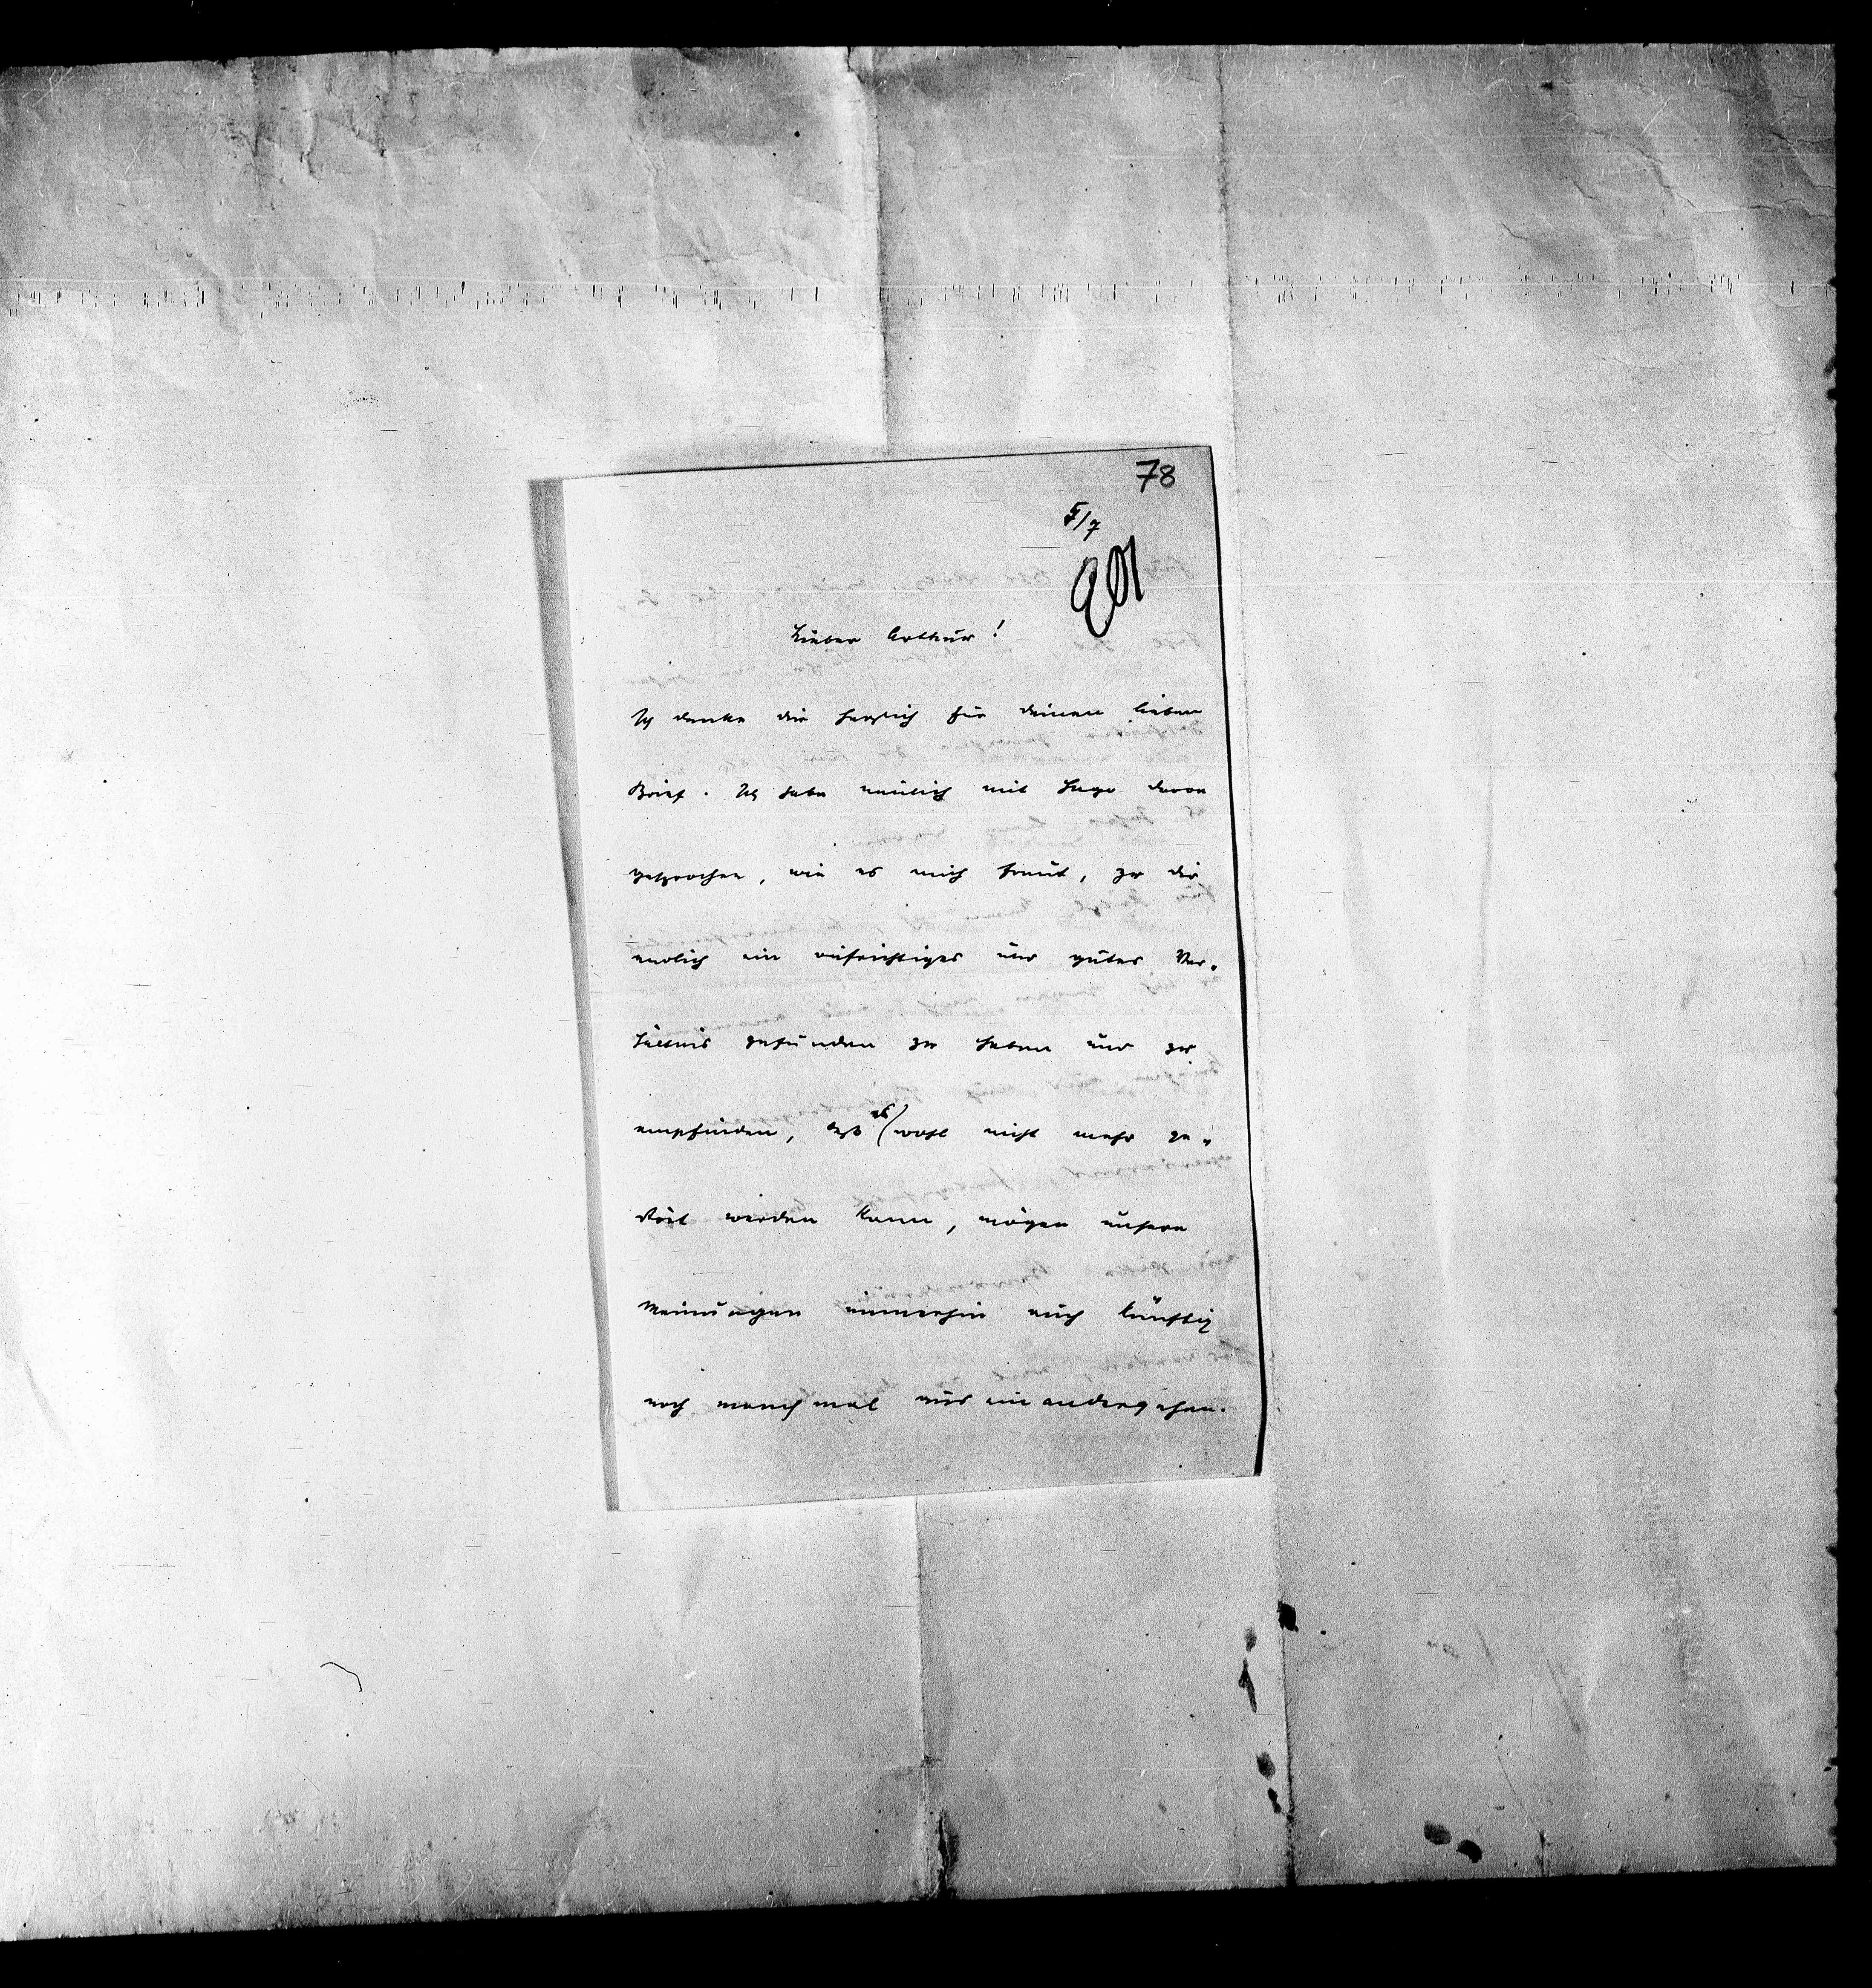 78
5/7
901
Lieber Arthur!
Ich danke dir herzlich für deinen lieben
Brief. Ich habe neulich mit Hugo davon
gesprochen, wie es mich freut, zu dir
endlich ein aufrichtiges und gutes Ver-
hältnis gefunden zu haben und zu
empfinden, daß es wohl nicht mehr ge-
stört werden kann, mögen unsere
Meinungen immerhin auch künftig
noch manchmal auseinandergehen.